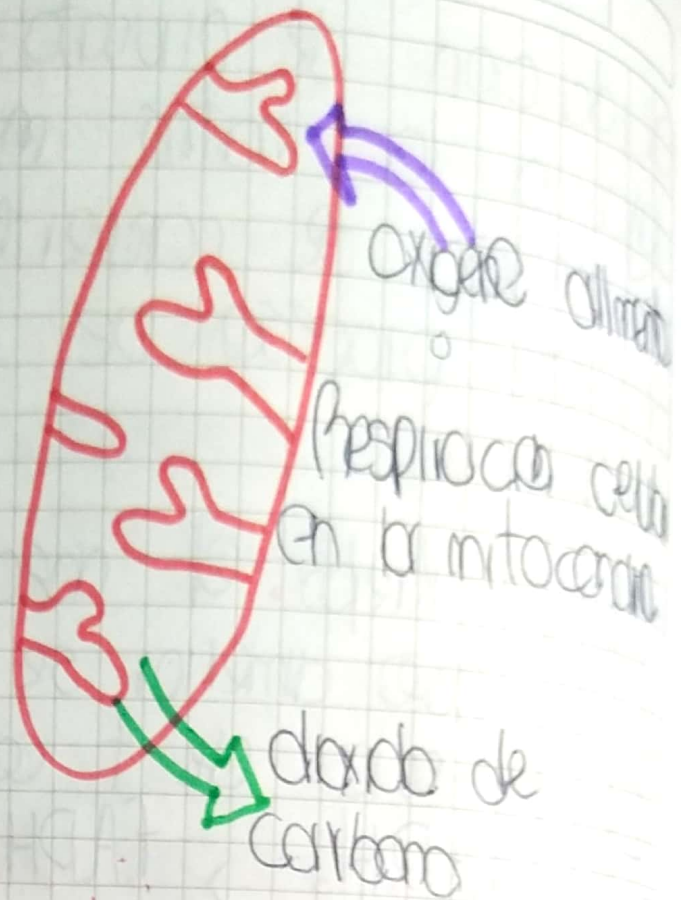 oxgene aliment
o
Respiracion celu
en la mitocondr
dioxido de
carbono